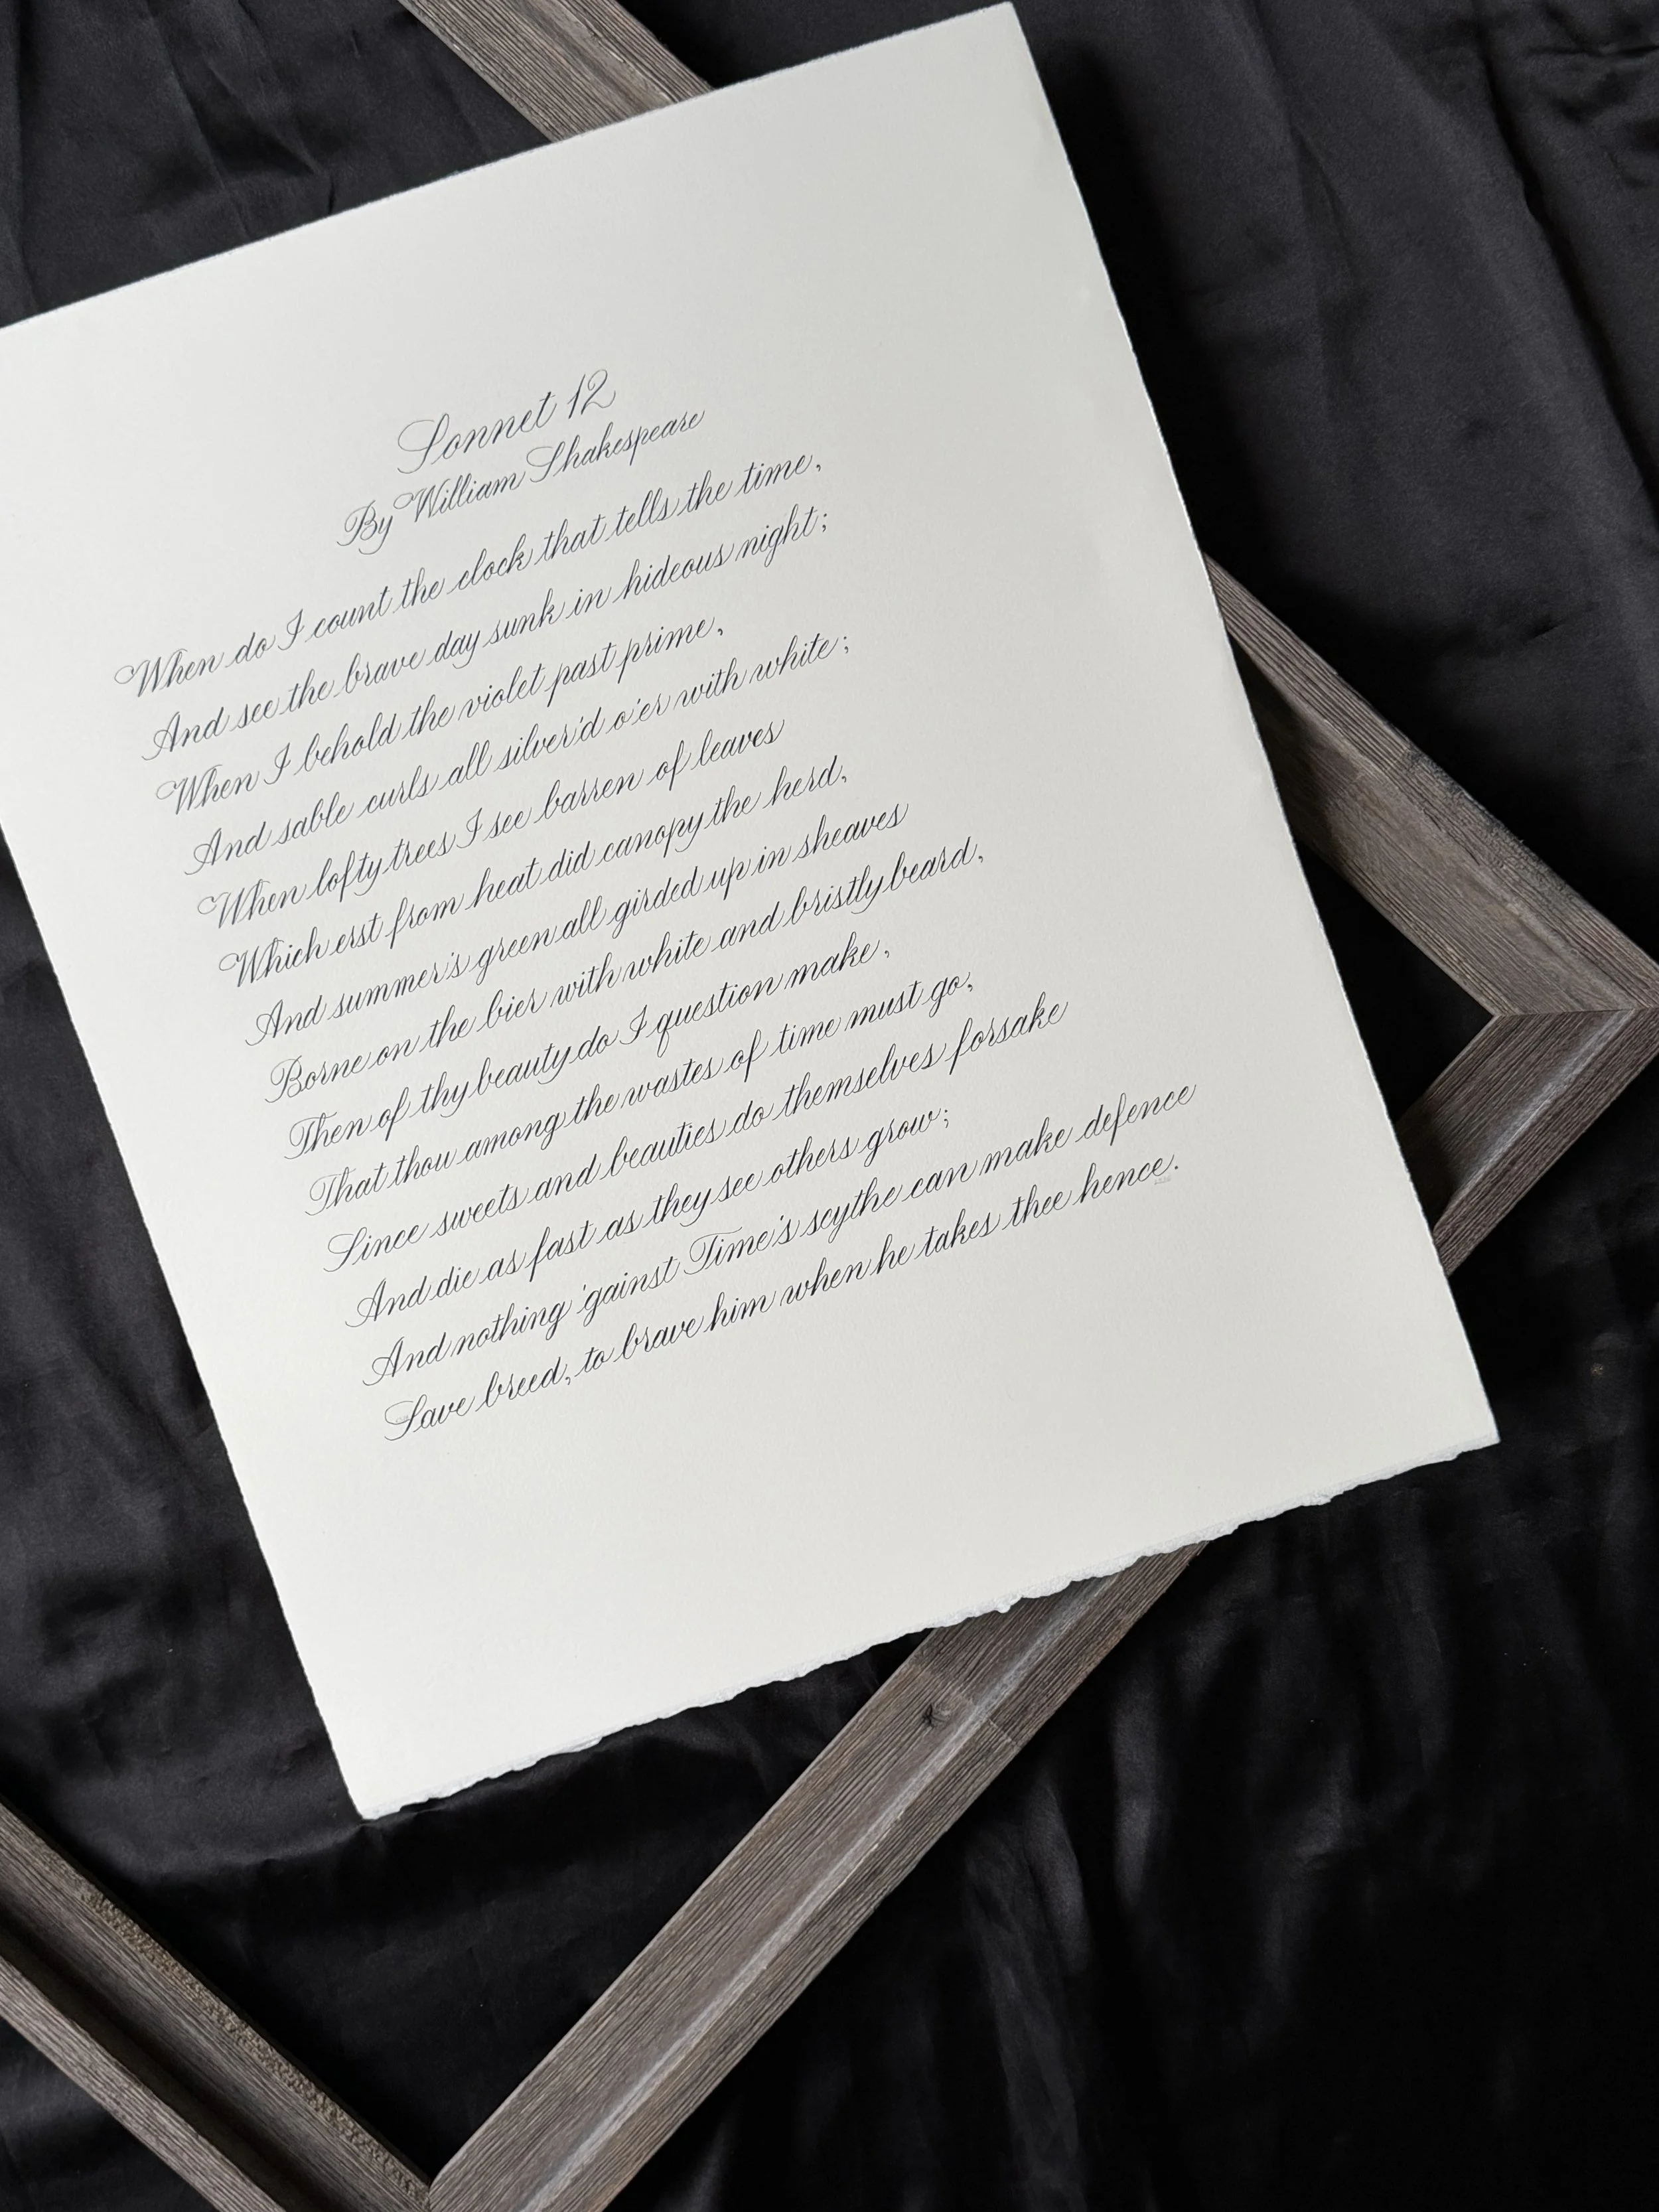 Sonnet 12
By William Shakespeare
When do I count the clock that tells the time,
And see the brave day sunk in hideous night;
When I behold the violet past prime,
And sable curls all silver'd o'er with white;
When lofty trees I see barren of leaves
Which erst from heat did canopy the herd,
And summer's green all girded up in sheaves
Borne on the bier with white and bristly beard,
Then of thy beauty do I question make,
That thou among the wastes of time must go,
Since sweets and beauties do themselves forsake
And die as fast as they see others grow;
And nothing 'gainst Time's scythe can make defence
Save breed, to brave him when he takes thee hence.